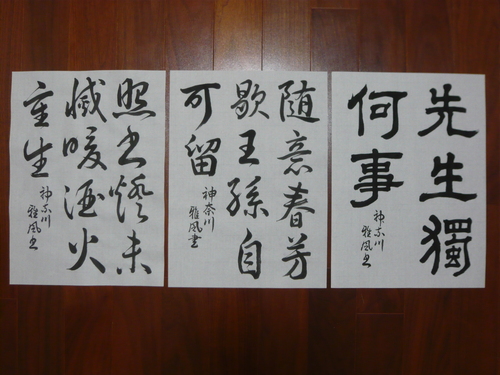 先生獨
何事
神奈川
雅風書
随意春芳
歇王孫自
可留
神奈川
雅風書
照書燈未
滅暖酒火
重生
神奈川
雅風書